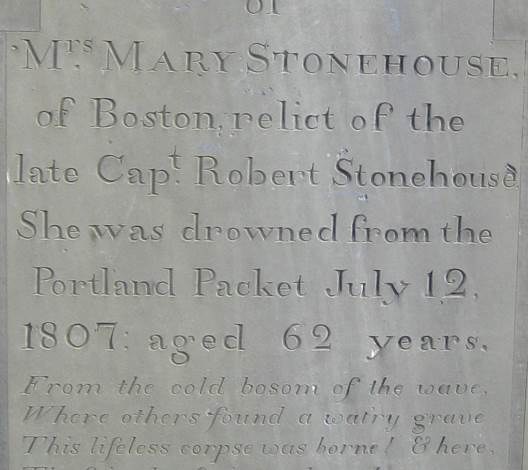 OF
Mrs. MARY STONEHOUSE,
of Boston, relict of the
late Capt. Robert Stonehouse.
She was drowned from the
Portland Packet July 12,
1807: aged 62 years.
From the cold bosom of the wave,
Where others found a watry grave
This lifeless corpse was borne! & here,